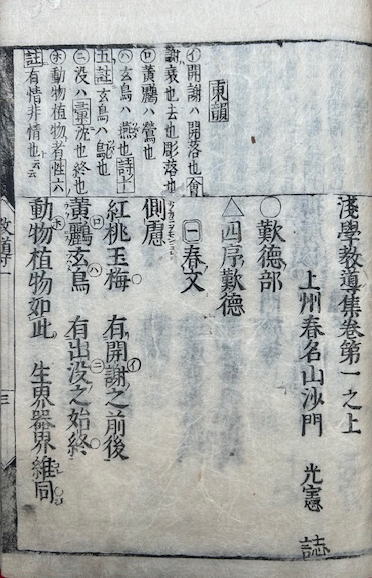 淺學教導集卷第一之上
上州春名山沙門 光憲 誌
○歎德部
△四序歎德
一春文
側慮
紅桃玉梅 有開謝之前後
黃鸝玄鳥 有出没之始終
動物植物如此 生界器界維同
東韻
㋑開謝ハ開落也
謝衰也去也彫落也
㋺黃鸝ハ鶯也
㋩玄鳥ハ燕也詩十
五註玄鳥ハ鳦也
㊁没ハ彙沈也終也
㋭動物植物者性六
註有情非情也云云
三